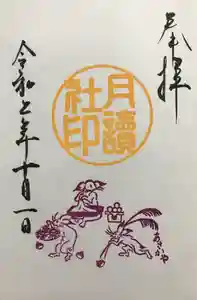 奉拝
月讀
社印
令和七年十月一日